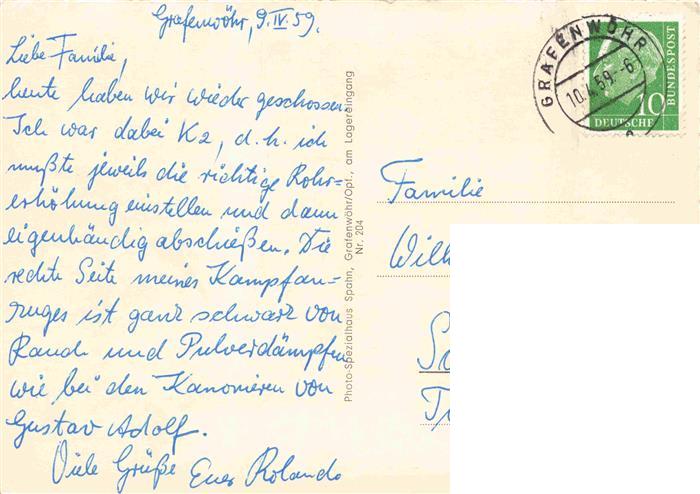 Grafenwöhr, 9.IV.59.
Liebe Familie,
heute haben wir wieder geschossen.
Ich war dabei K2, d.h. ich
mußte jeweils die richtige Rohr=
erhöhung einstellen und dann
eigenhändig abschießen. Die
rechte Seite meines Kampfan=
zuges ist ganz schwarz von
Rauch und Pulverdämpfen
wie bei den Kanonieren von
Gustav Adolf.
Viele Grüße Euer Roland
Photo-Spezialhaus Spahn, Grafenwöhr/Opf., am Lagereingang
Nr. 204
GRAFENWÖHR
10.4.59.-6
DEUTSCHE
BUNDESPOST
10
Familie